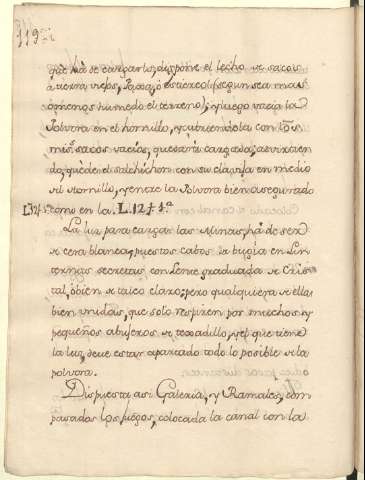 119
que hà de cargarlo, dispone el lecho de sacos
à tierra viejos, Paja, ò estiercol (segun sea mas
ò menos humedo el terreno), y luego vacia la
Polvora en el hornillo, y cubriendola con los
mis.s sacos vacios, quedarà cargada; advirtien
do, quede el salchichon con su clavija en medio
del Hornillo, y entre la Polvora bien asegurado
L.12 f.1ª como en la L.12 f.1ª
La luz para cargar las Minas, hà de ser
de cera blanca, puestos cabos de bugia en Lin
ternas secretas con Lente graduada de Cris
tal, ò bien de talco claro; pero qualquiera de ellas
bien unidas, que solo respiren por muchos y
pequeños abujeros de texadillo, y el que tiene
la luz, deve estar apartado todo lo posible de la
polvora.
Dispuesta asi Galeria, y Ramales, com
pasados los fuegos, colocada la canal con la